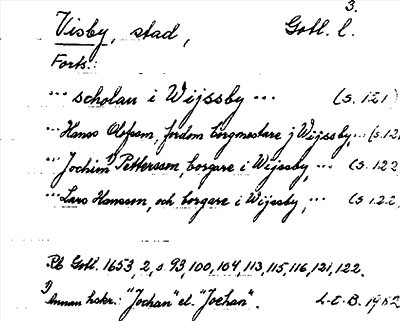 3.
Visby, stad, Gotl. l.
Forts.:
... scholan i Wijssby ... (s. 121)
... Hanss Olofsson, fordom borgmestare j Wijssby, ... (s. 121
... Jochim¹⁾ Pettersson, borgare i Wijssby, ... (s. 122
... Lars Hansson, och borgare i Wijssby, ... (s 122.
Rb Gotl. 1653, 2, s. 93, 100, 104, 113, 115, 116, 121, 122.
¹⁾ Annan hskr.: "Jochan" el. "Jochan".
L.E.B. 1952